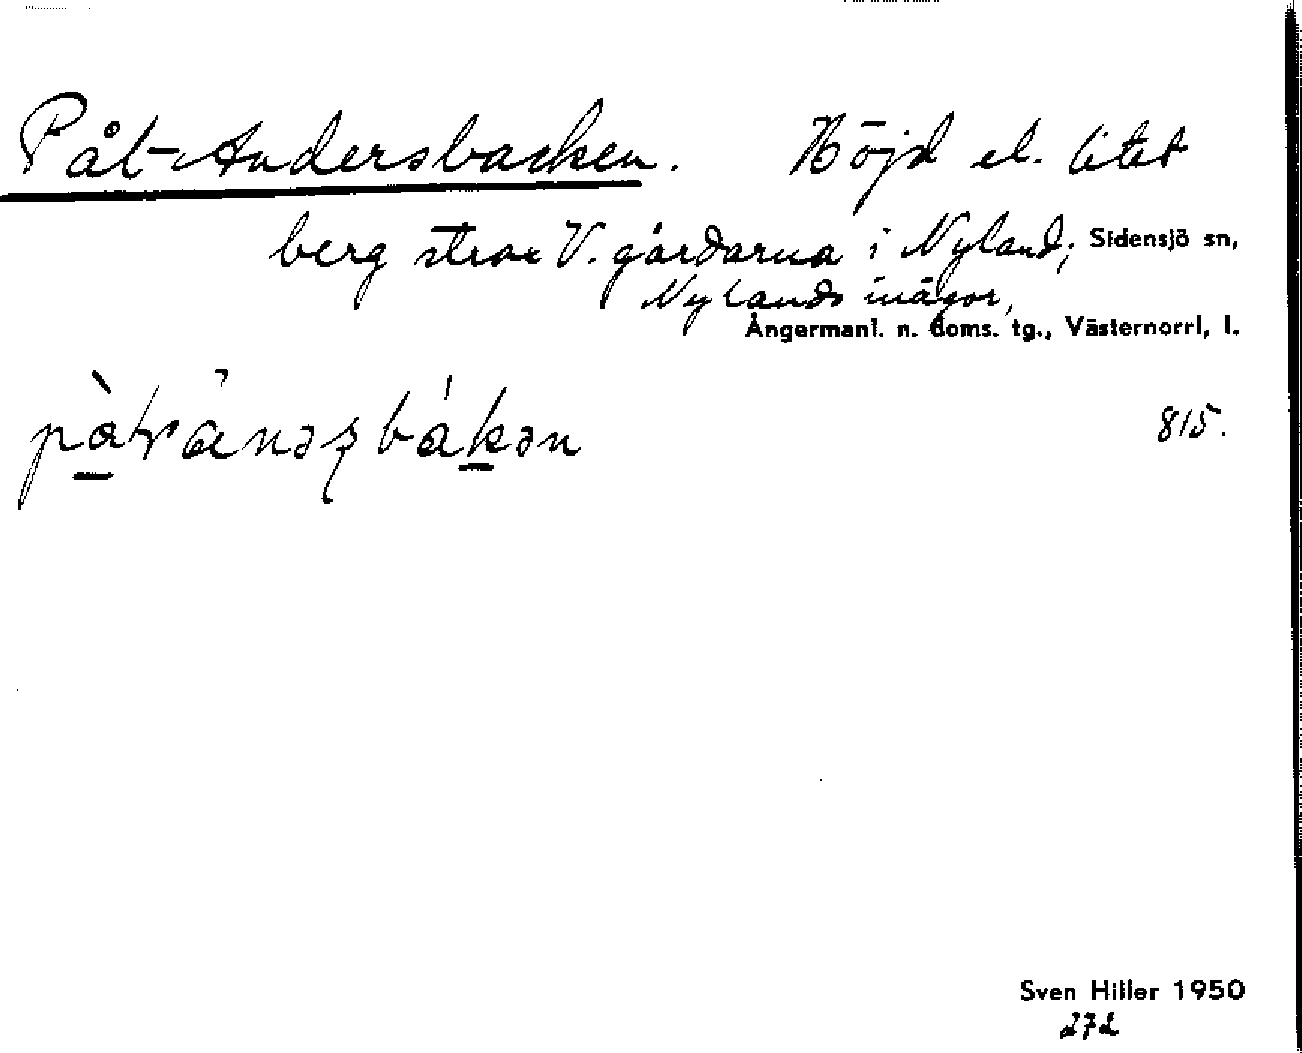 Pål-Andersbacken. Höjd el. litet
berg strax V. gårdarna i Nyland; Sidensjö sn,
Nylands inägor,
Ångermanl. n. doms. tg., Västernorrl, l.
815.
Sven Hiller 1950
272